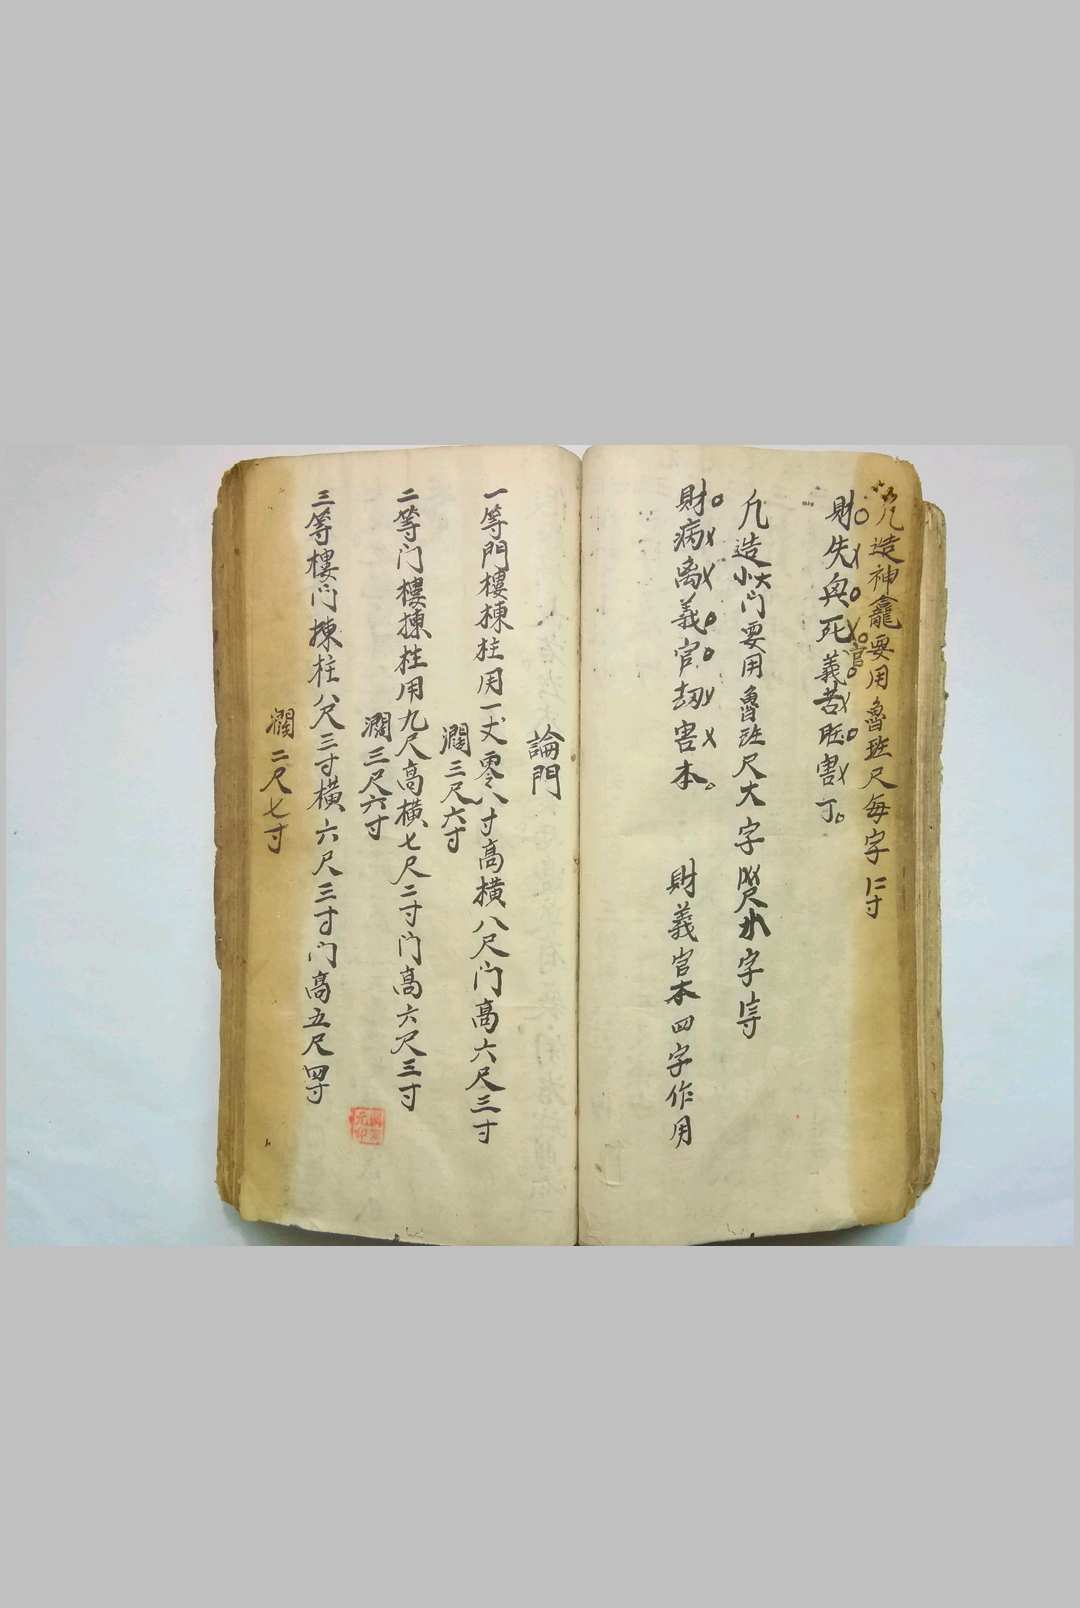 凢造神龕要用魯班尺每字仁寸
財失興死官義苦旺害丁
凢造大小门要用魯班尺大字 尺 字 寸
財病离義官劫害本 財義官本四字作用
論門
一等門樓棟柱用一丈零八寸高橫八尺门高六尺三寸
濶三尺六寸
二等门樓棟柱用九尺高橫七尺二寸门高六尺三寸
濶三尺六寸
三等樓门棟柱八尺三寸橫六尺三寸门高五尺四寸
濶二尺七寸